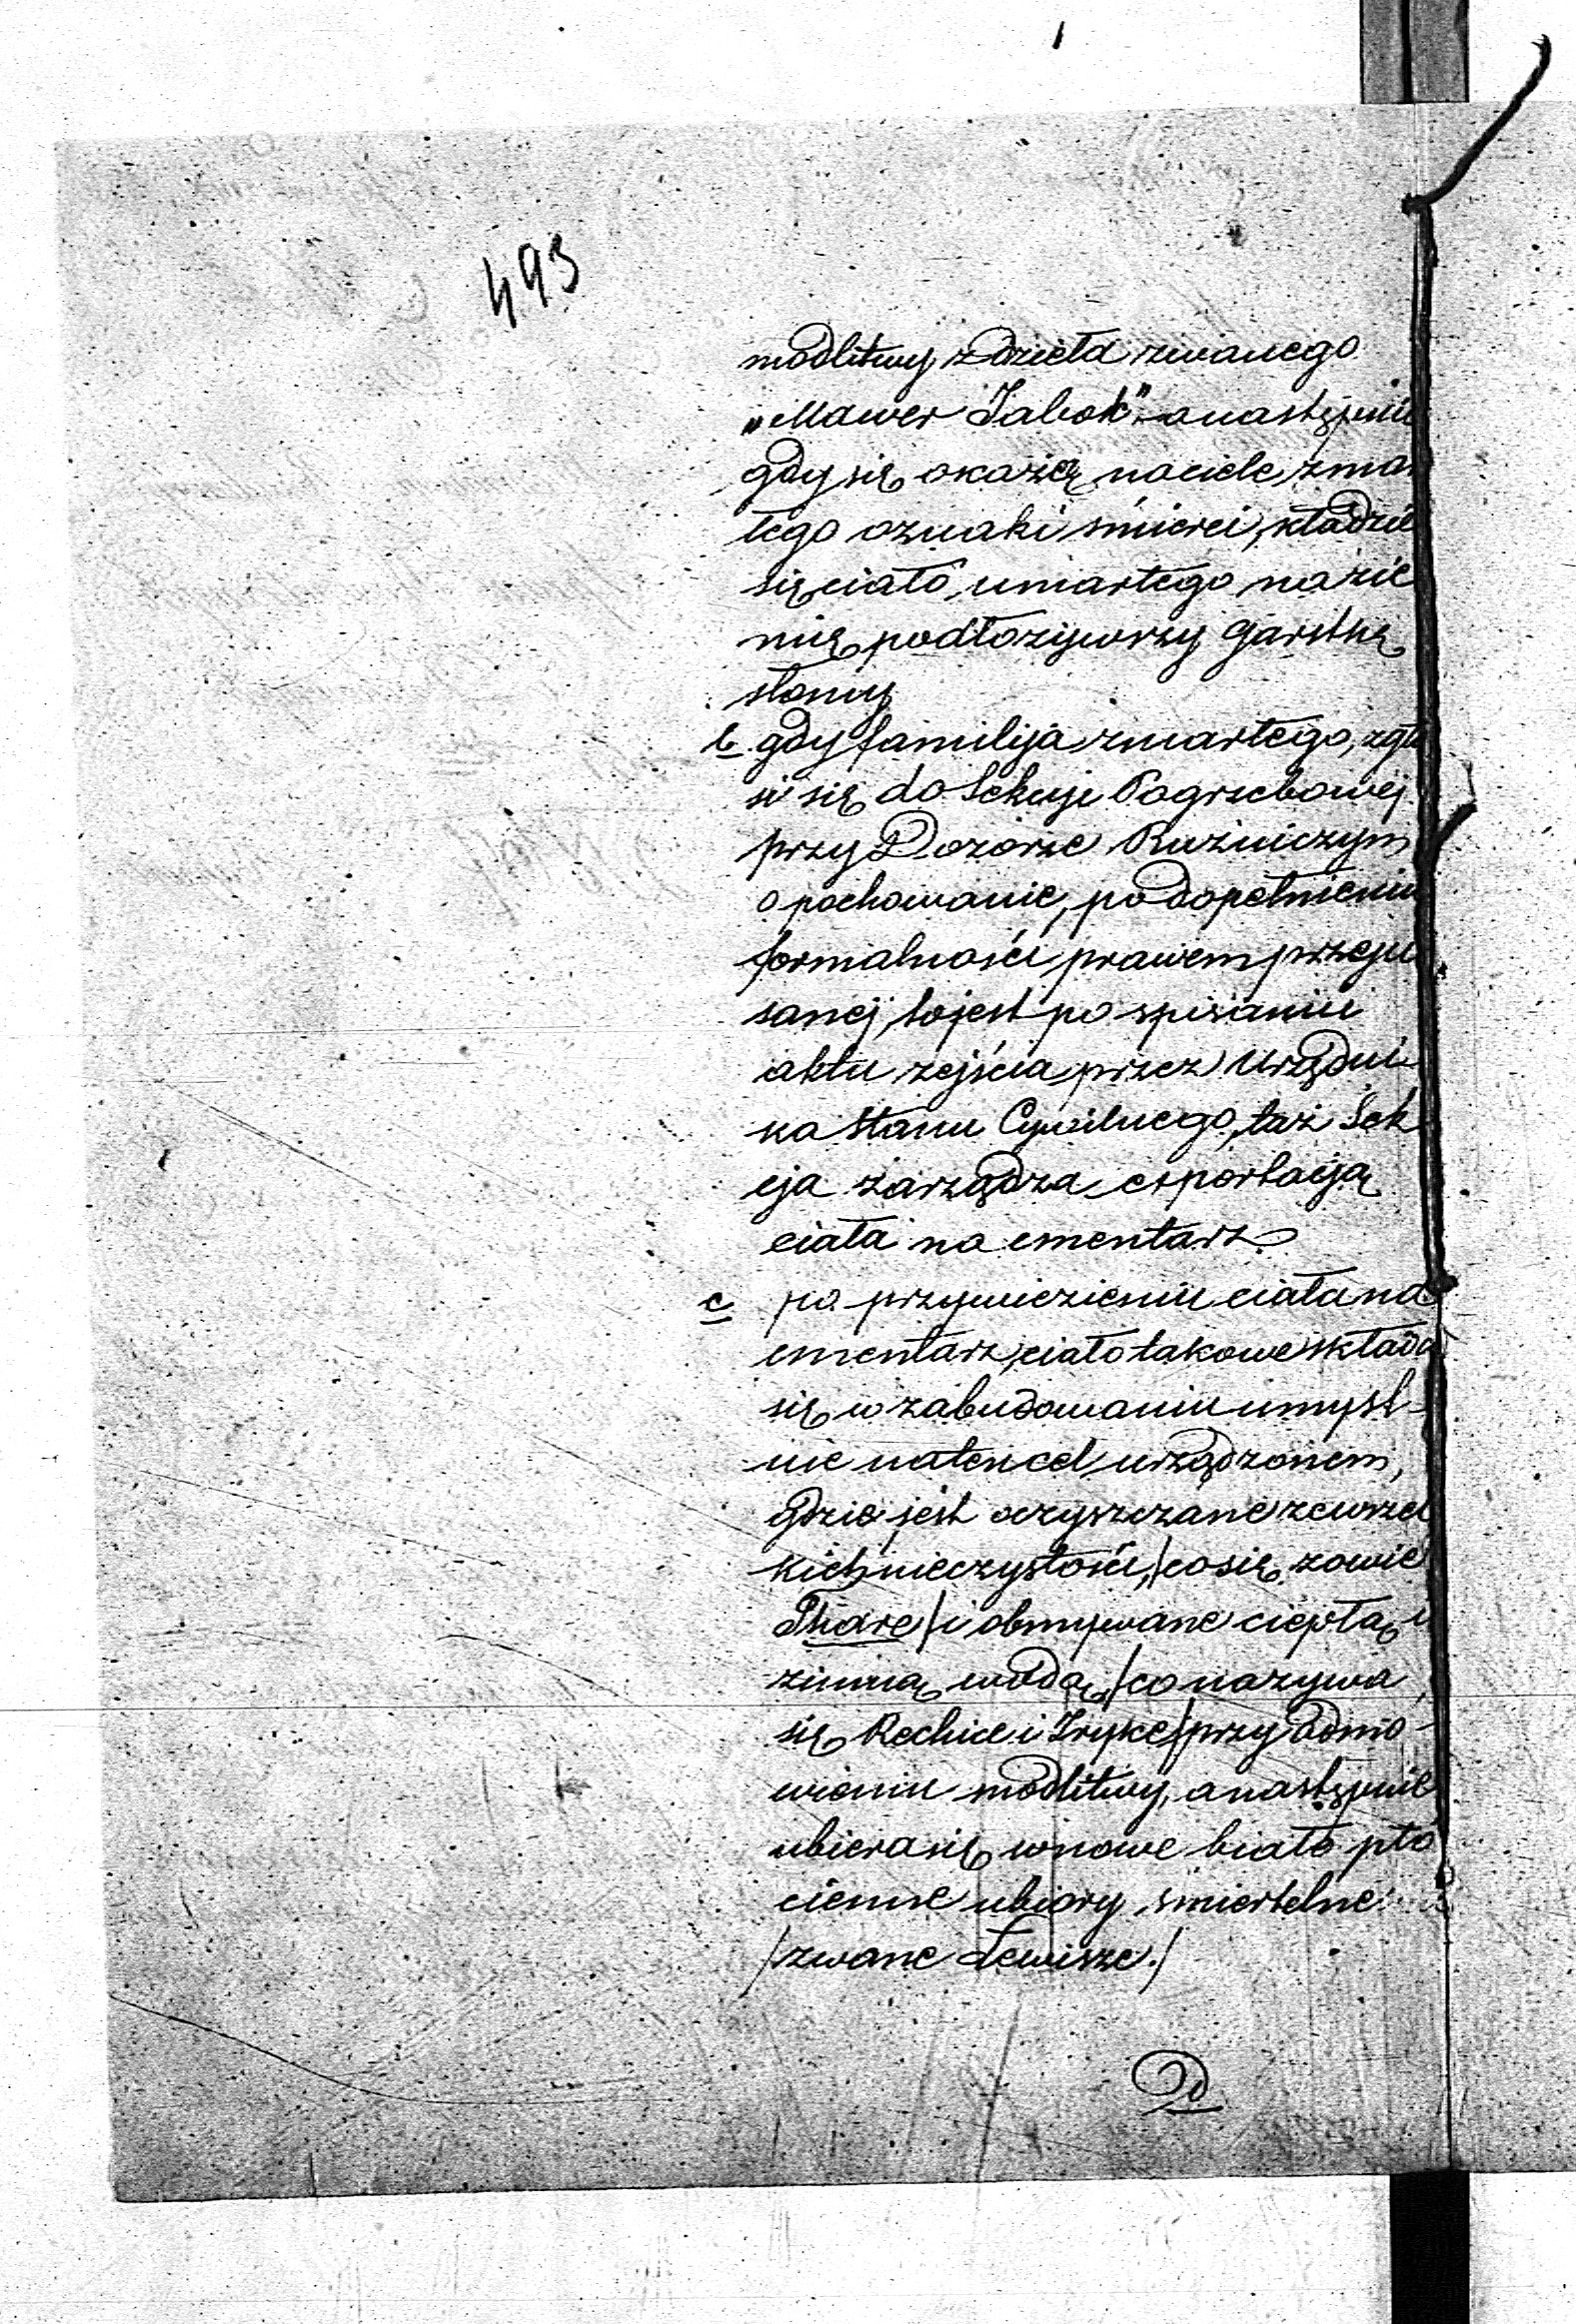 493
modlitwy z dzieła zwanego
„Mawer Jabok” a następnie
gdy się okażą na ciele zmar
łego oznaki śmierci, kładzie
się ciało umarłego na zie
mię podłożywszy garstkę
słomy
b. gdy familija zmarłego, zgło
si się do Sekcyi Pogrzebowej
przy Dozorze Bużniczym
o pochowanie, po dopełnieniu
formalności prawem przepi
sanej, to jest po spisaniu
aktu zejścia przez Urzędni
ka Stanu Cywilnego, taż Sek
cja zarządza exportacją
ciała na cmentarz
c po przywiezieniu ciała na
cmentarz, ciało takowe składa
się w zabudowaniu umyśl-
nie na ten cel urządzonem,
gdzie jest oczyszczane ze wszel
kich nieczystości, /co się zowie
Thare/ i obmywane ciepłą i
zimną wodą, /co nazywa
się Rechice i Tryke/ przy odmó-
wieniu modlitwy, a następnie
ubiera się w nowe białe płó
cienne ubiory śmiertelne
/zwane Tewisze./
D